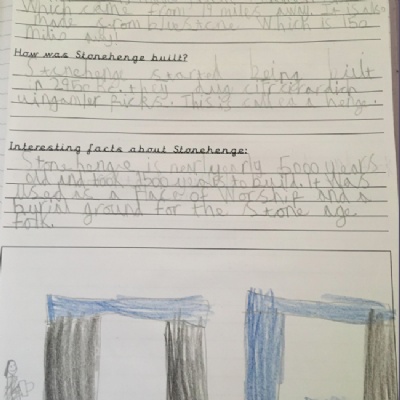 Which came from miles away. It is also
made from bluestone which is 150
miles away
How was Stonehenge built?
Stonehenge started being built
in 2950 BC. they dug circular dich
using antler Picks. This is called a henge.
Interesting facts about Stonehenge:
Stonehenge is nearly 5000 years
old and took 1500 years to build. It was
used as a Place of Worship and a
burial ground for the Stone age
folk.